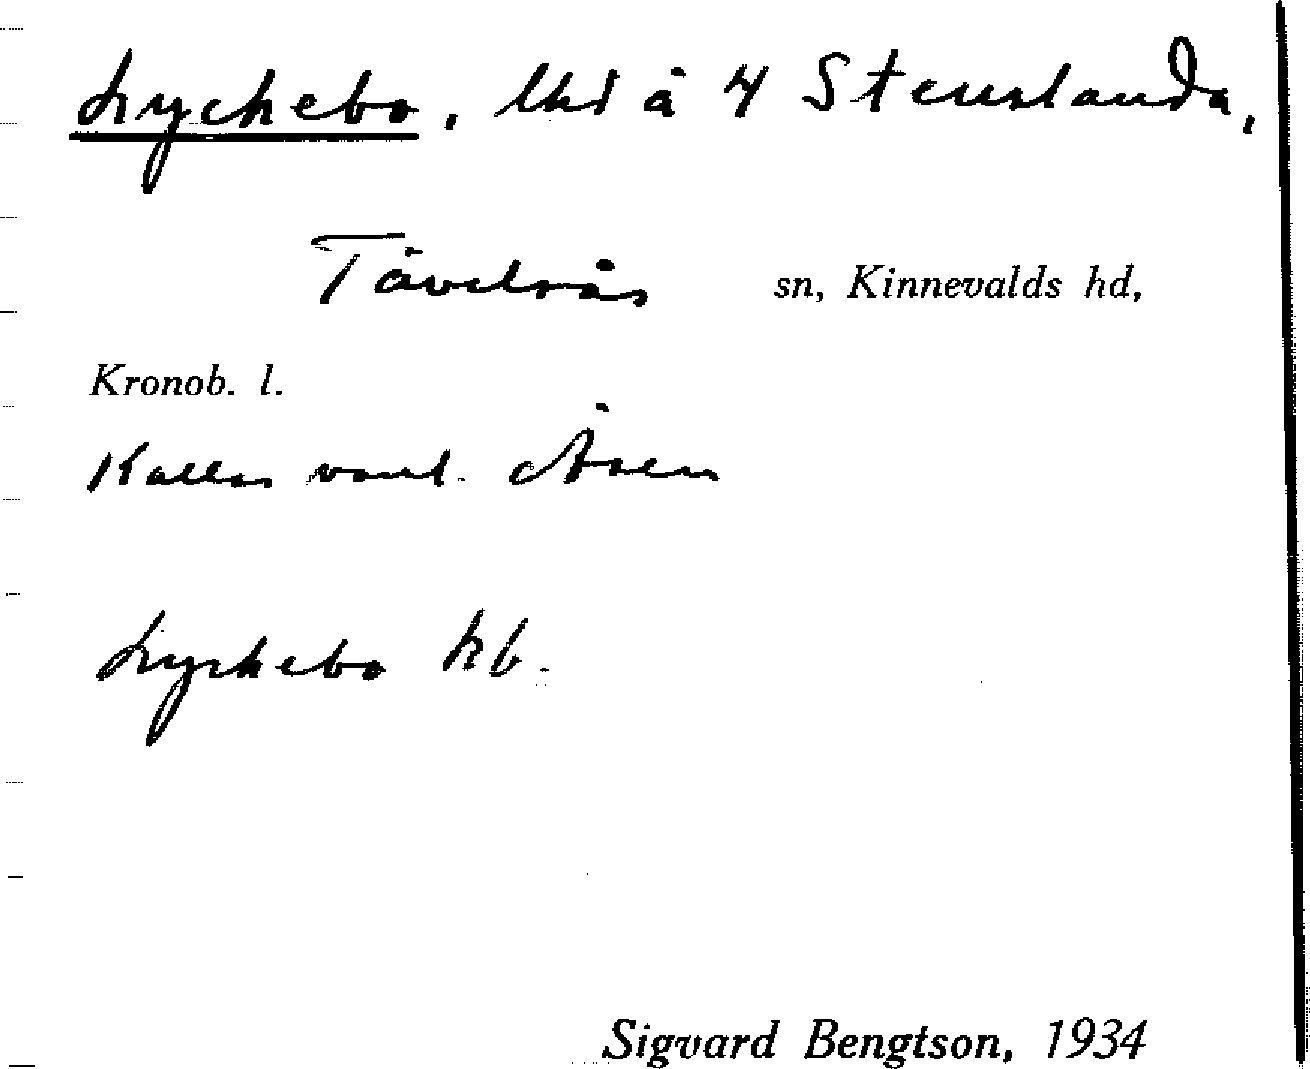 Lyckebo, lht å 4 Stenslanda,
Tävelsås sn, Kinnevalds hd,
Kronob. l.
Kallas vanl. Åsen
Lyckebo kb.
Sigvard Bengtson, 1934